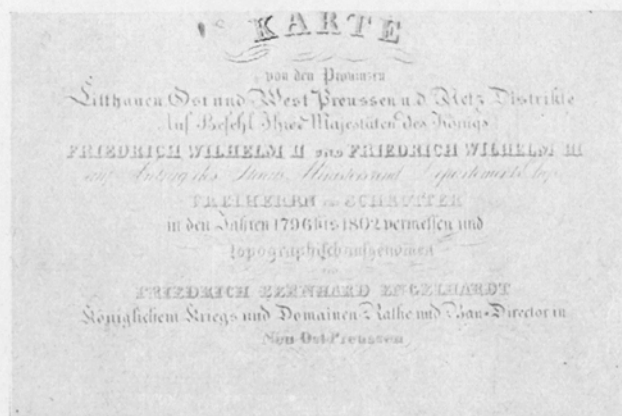 KARTE
von den Provinzen
Litthauen, Ost und West Preussen u. d. Netz Distrikte
Auf Befehl Ihrer Majestäten des Königs
FRIEDRICH WILHELM II und FRIEDRICH WILHELM III
auf Antrag des Staats Ministers und Departements Chef
FREIHERRN von SCHRÖTTER
in den Jahren 1796 bis 1802 vermessen und
topographisch aufgenommen
von
FRIEDRICH BERNHARD ENGELHARDT
Königlichem Kriegs und Domainen-Rathe und Bau-Director in
Neu Ost Preussen